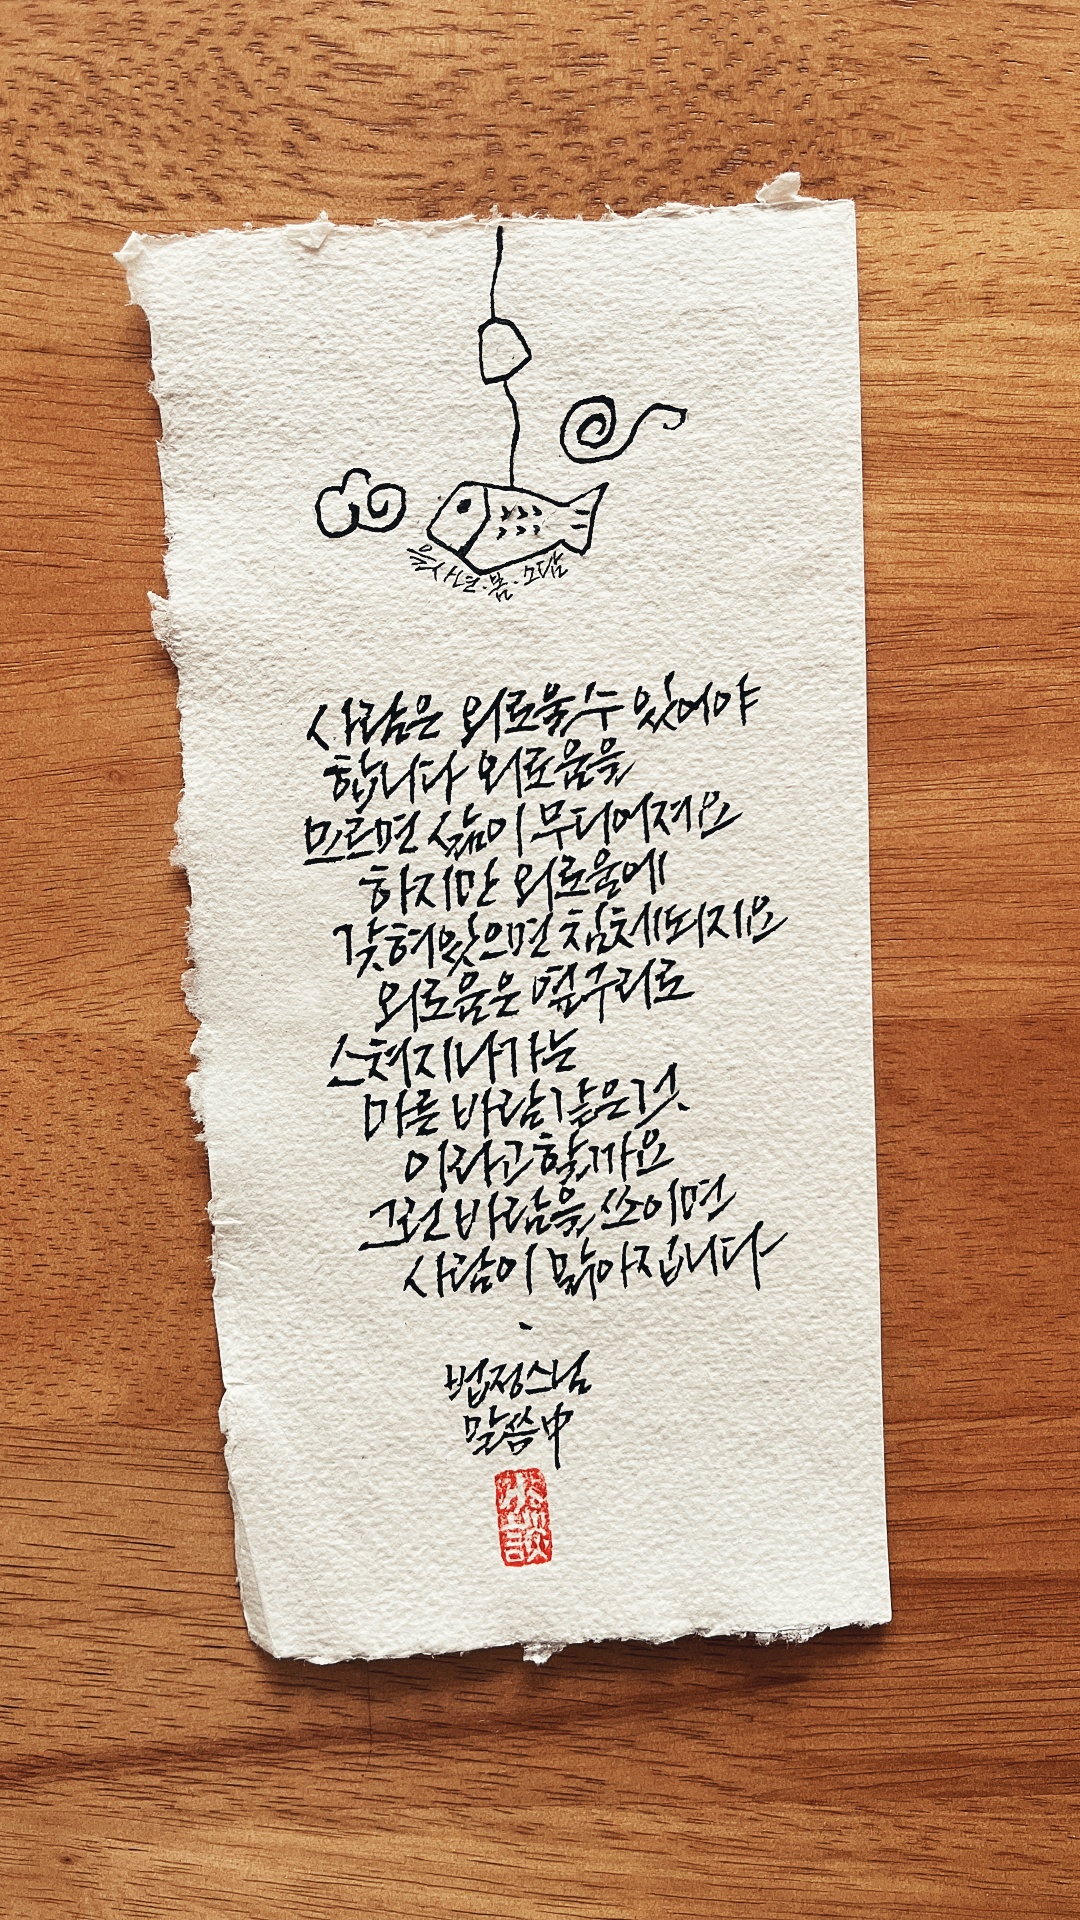 을사년.봄.소담
사람은 외로울수 있어야
합니다 외로움을
모르면 삶이 무디어져요
하지만 외로움에
갖혀있으면 침체되지요
외로움은 옆구리로
스쳐지나가는
마른 바람같은것.
이라고할까요
그런바람을 쏘이면
사람이 맑아집니다
법정스님
말씀中